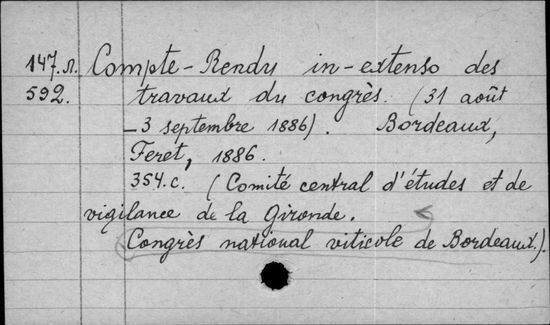 147.Л. Compte-Rendu in-extenso des
592. travaux du congrès. (31 août
-3 septembre 1886). Bordeaux,
Feret, 1886.
354.c. (Comité central d'études et de
vigilance de la Gironde.
Congrès national viticole de Bordeaux.).